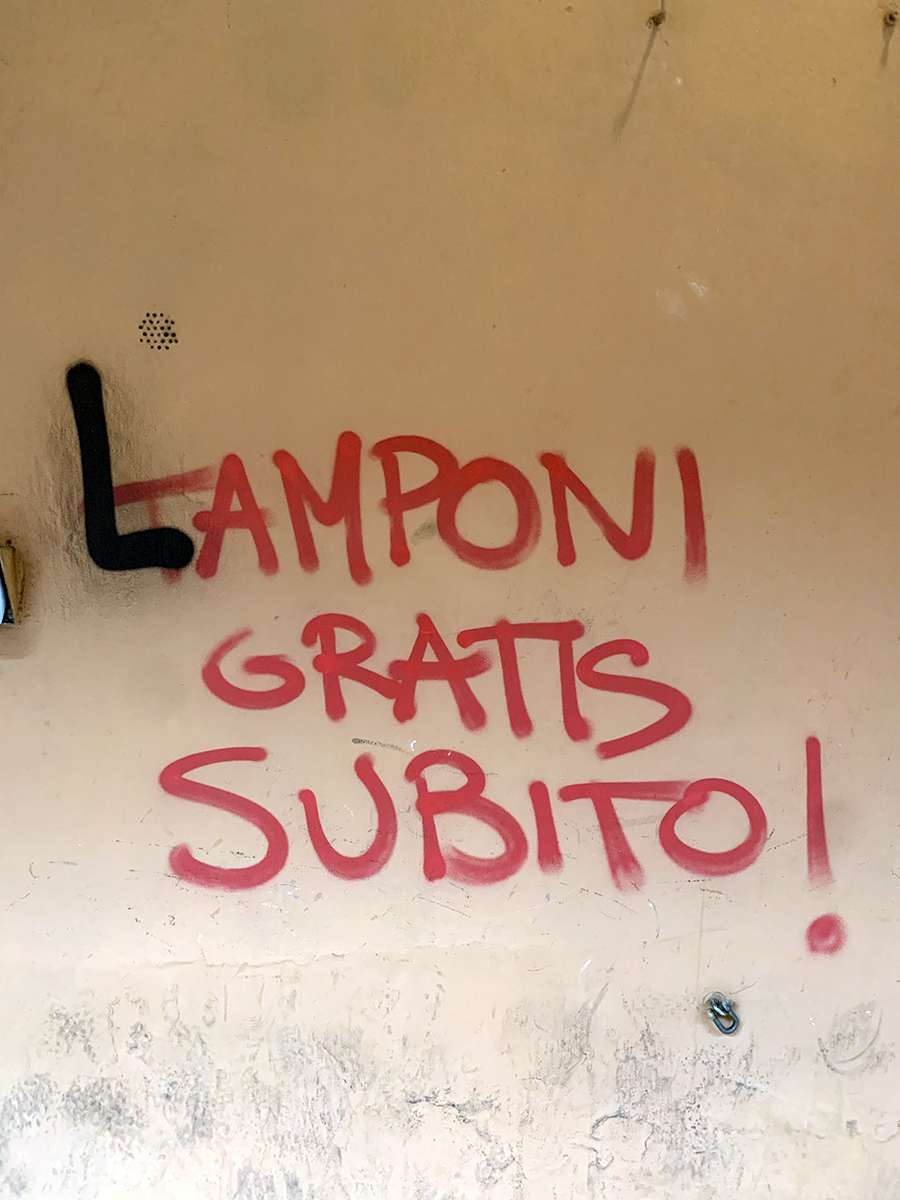 LAMPONI
GRATIS
SUBITO!